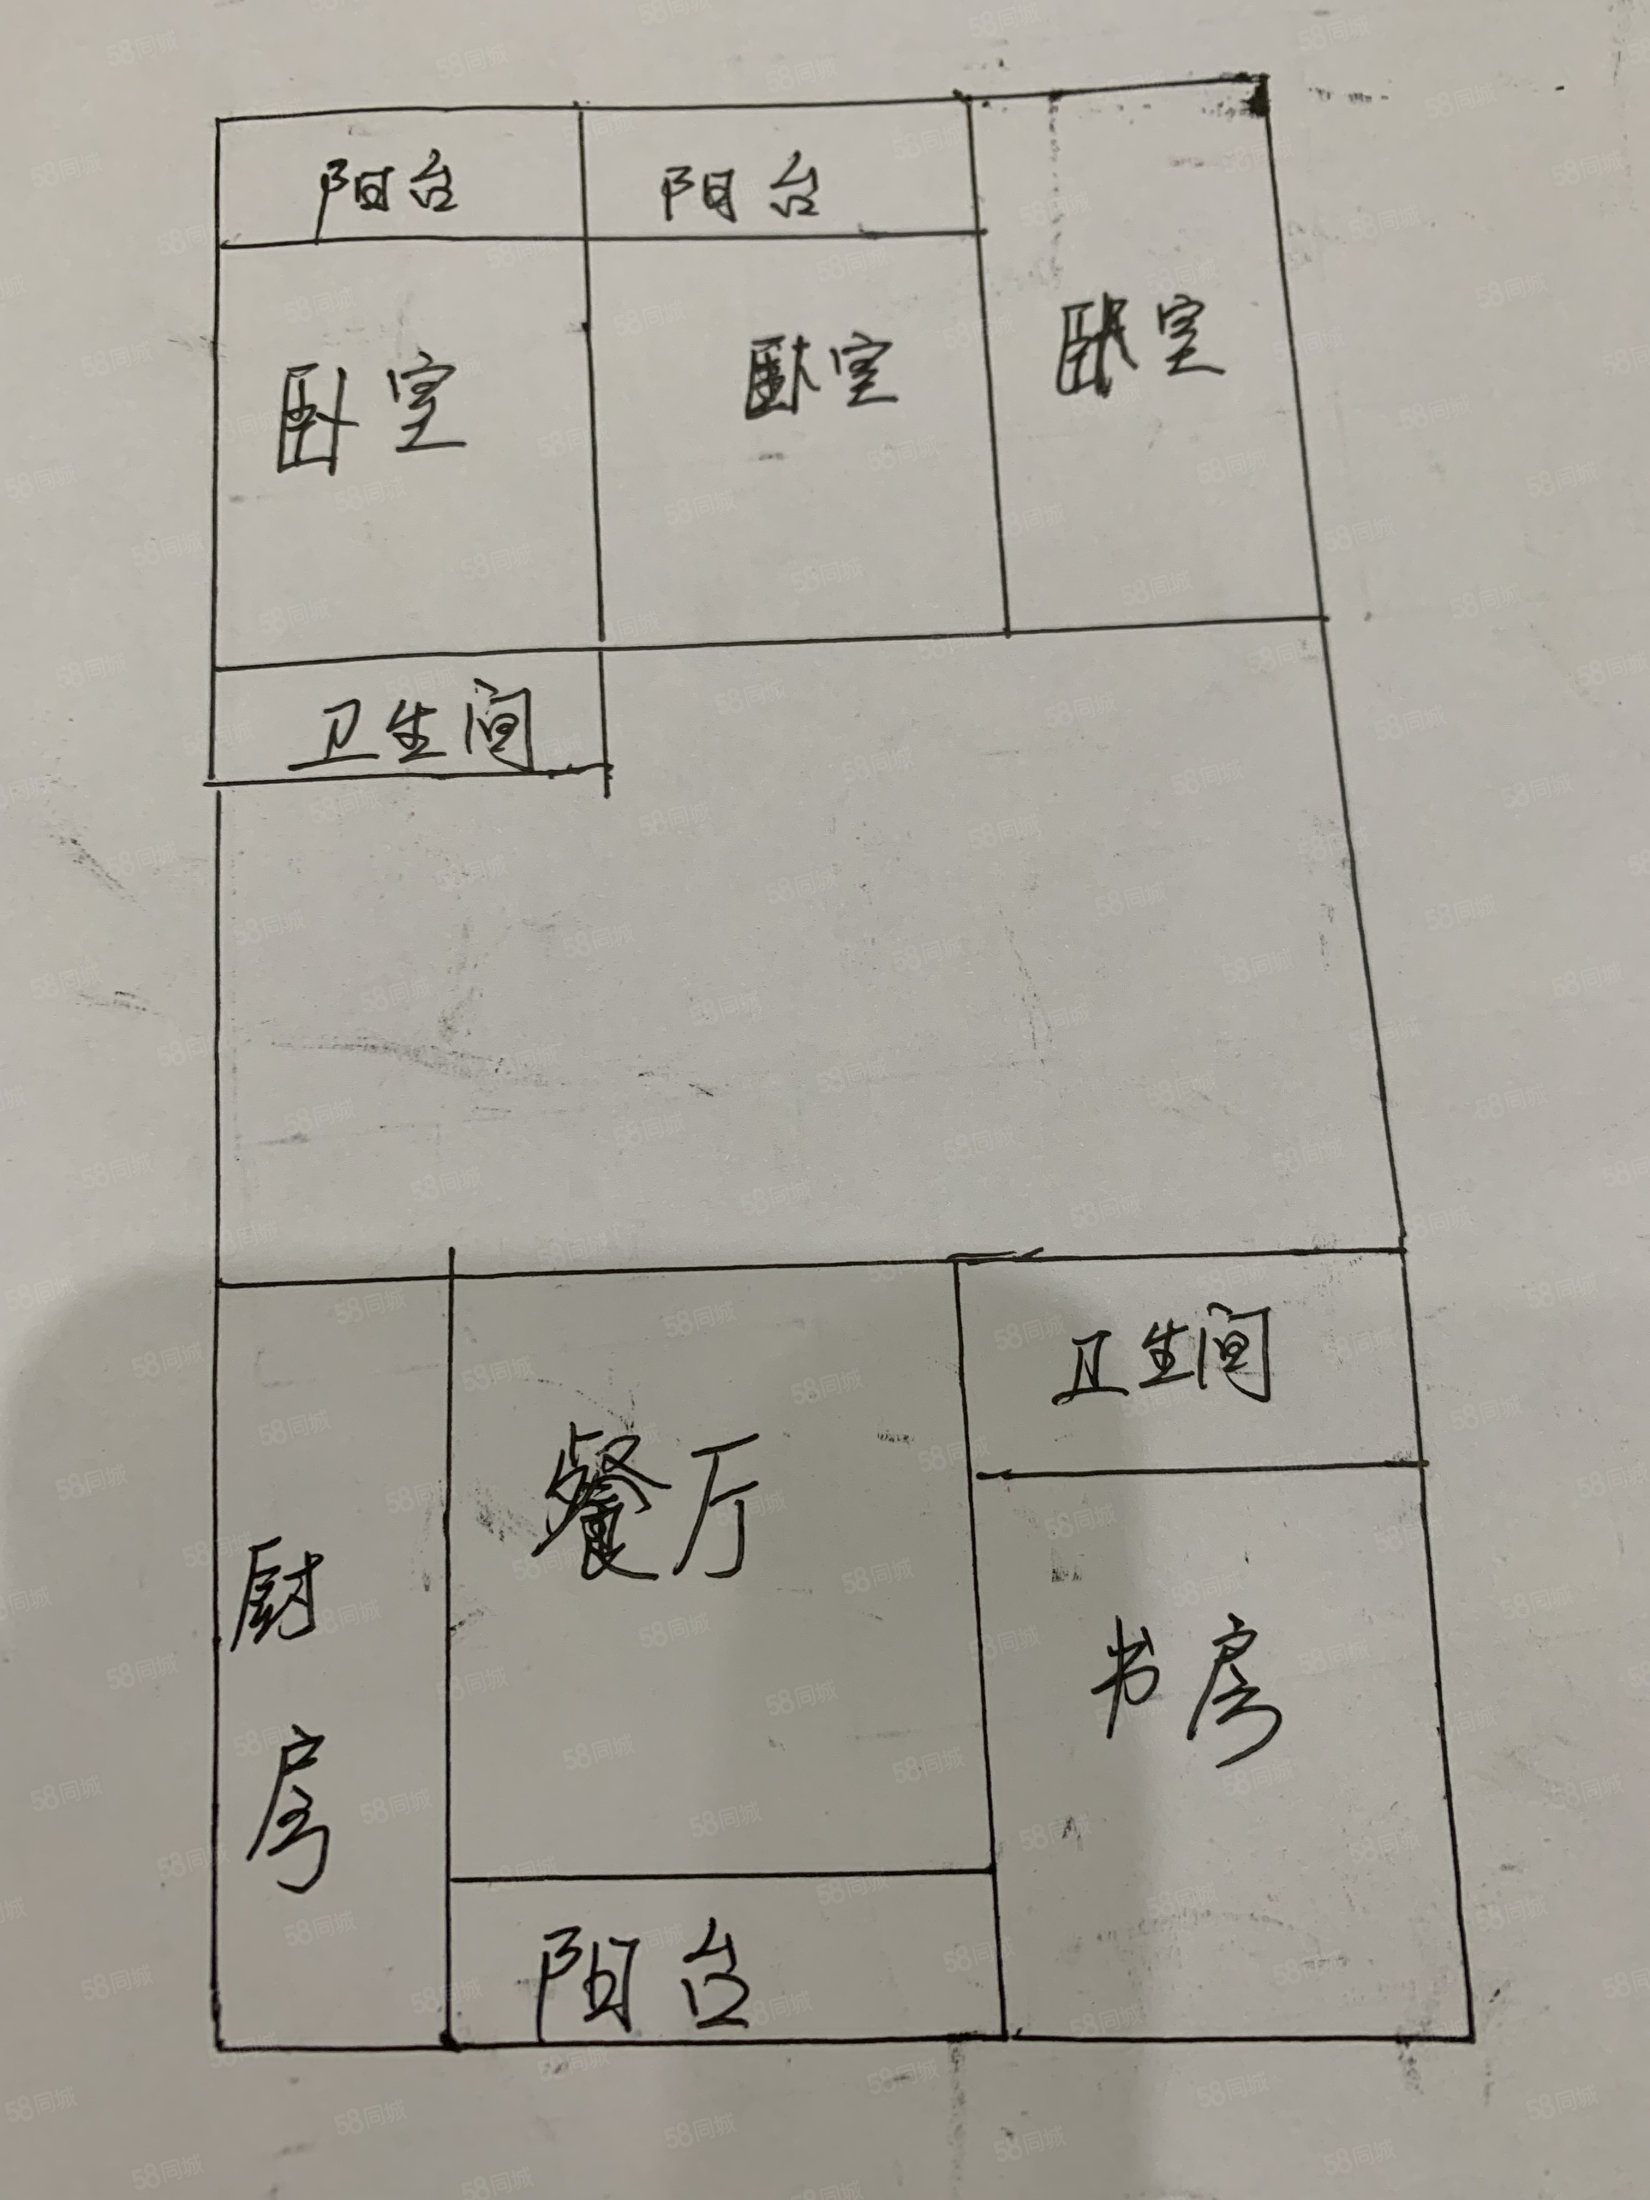 阳台
阳台
卧室
卧室
卧室
卫生间
卫生间
餐厅
厨房
书房
阳台
58同城